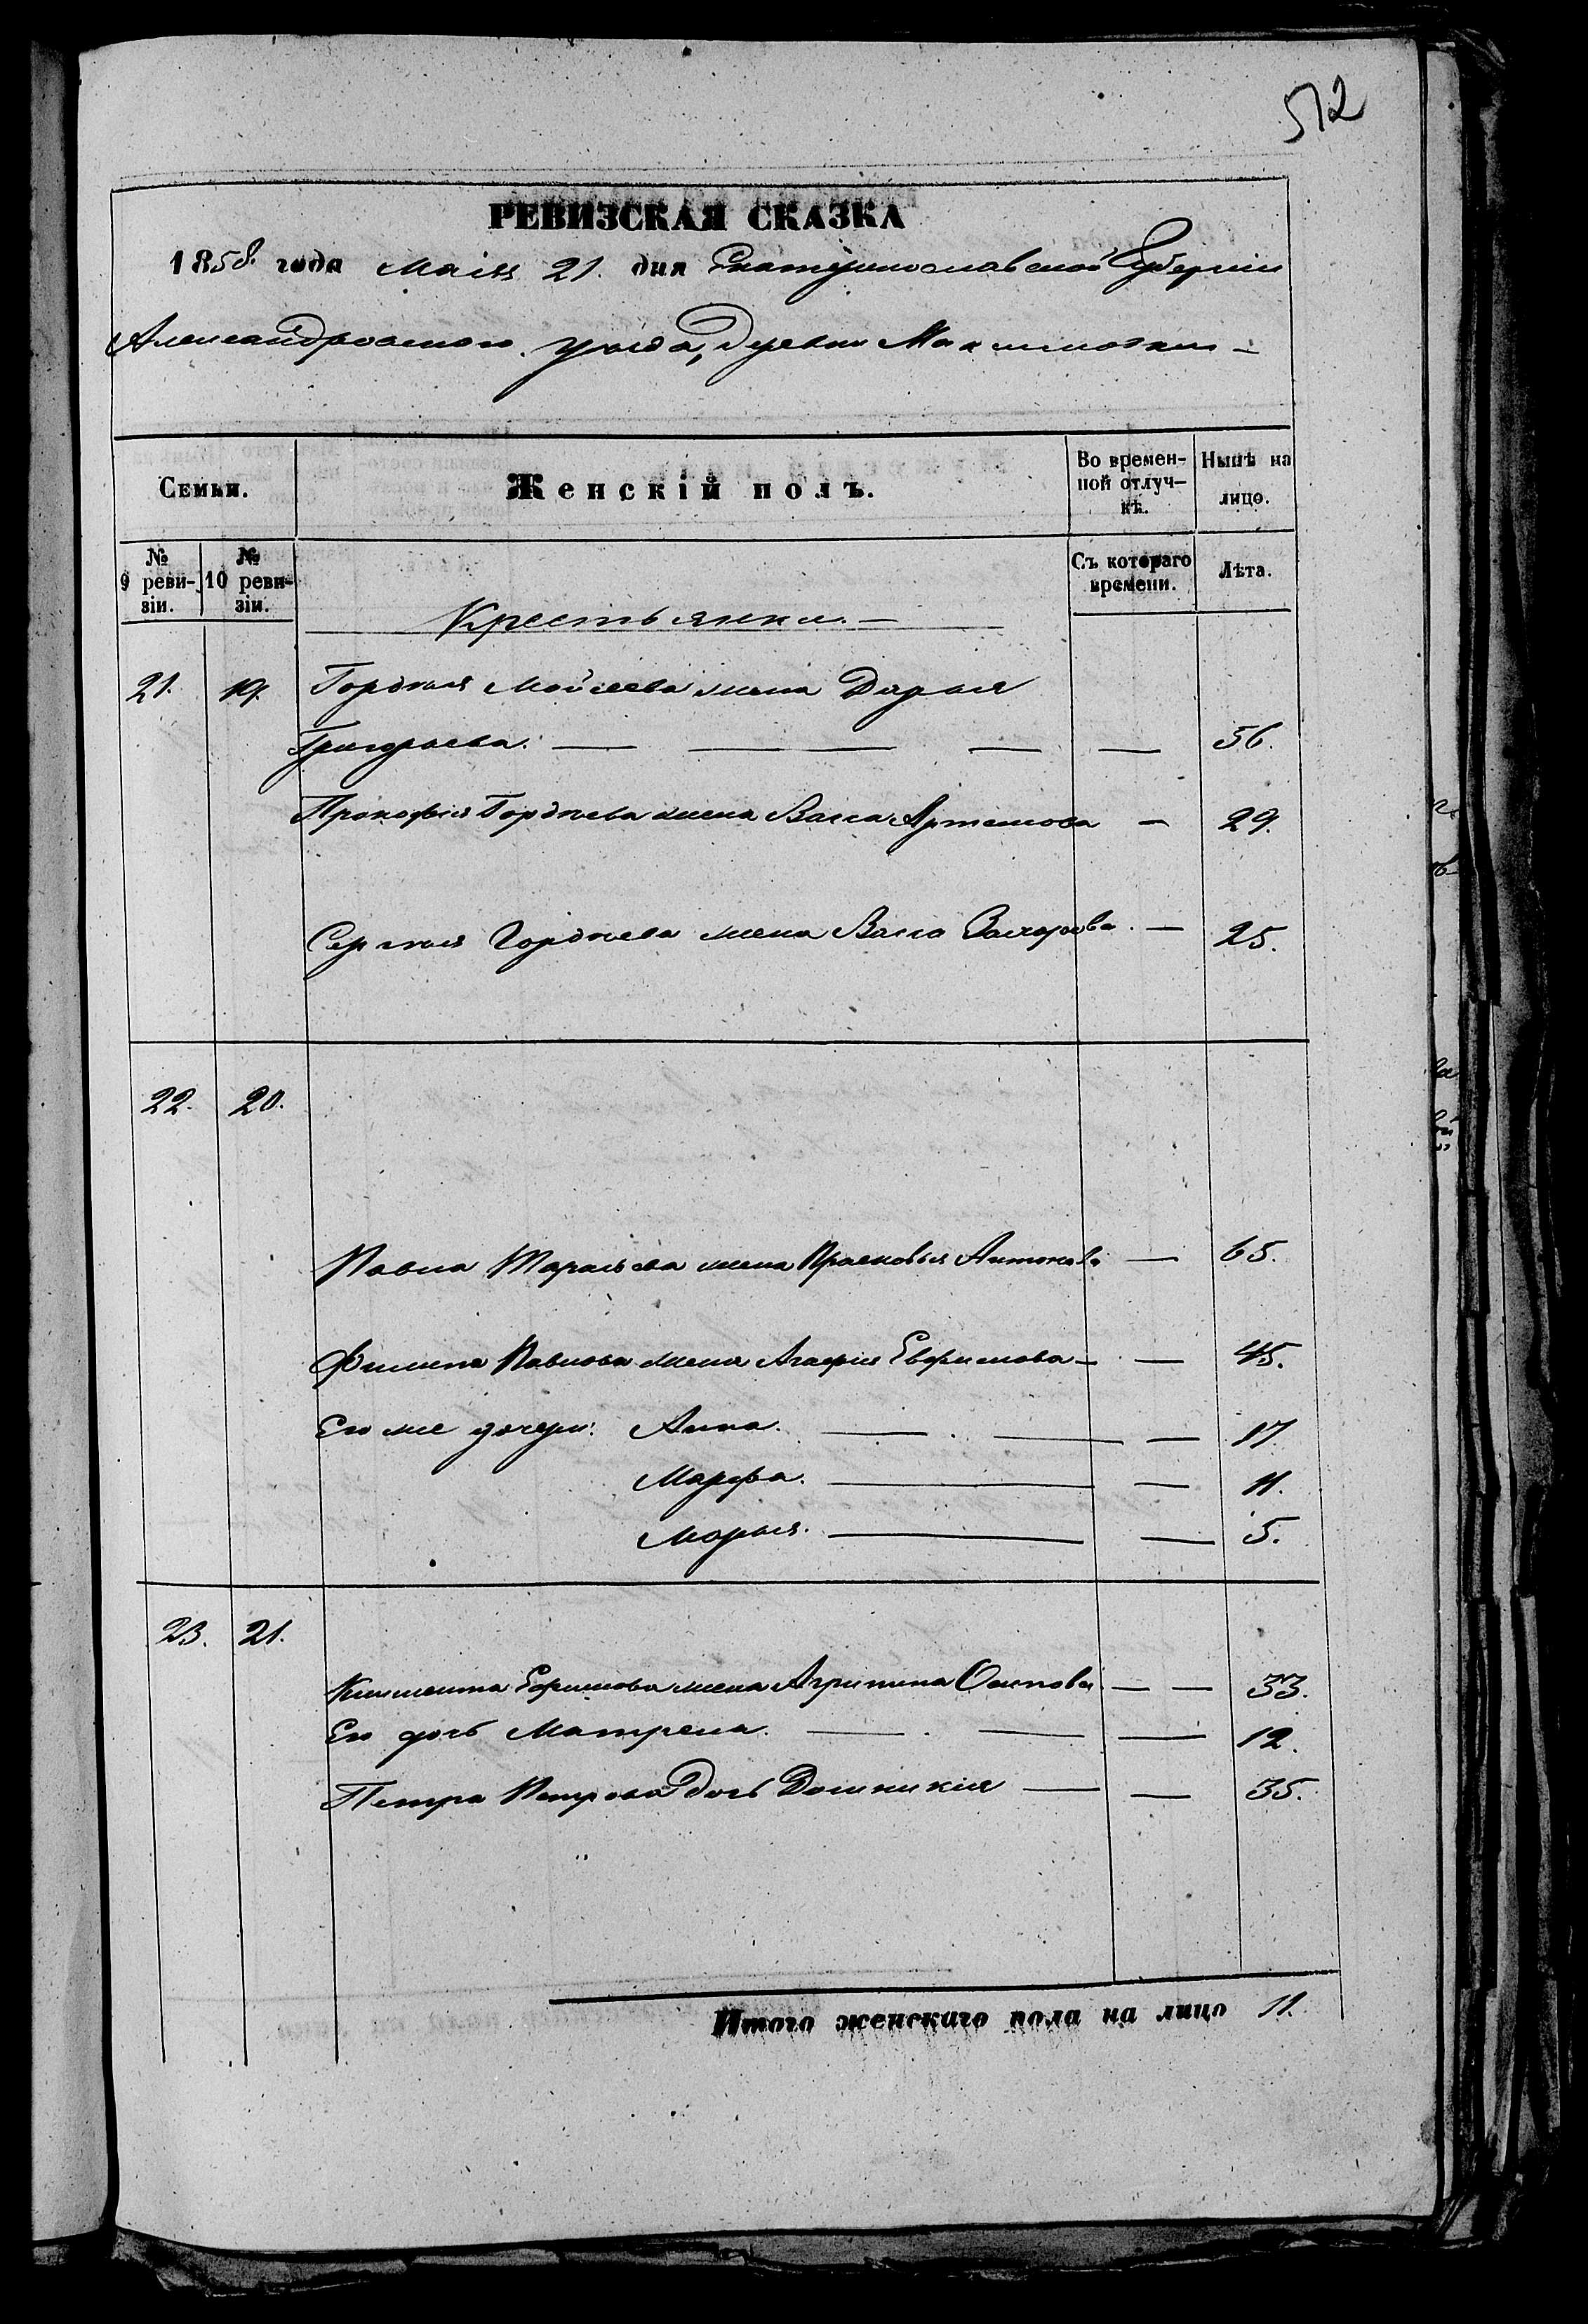 512
РЕВИЗСКАЯ СКАЗКА
1858 года Маія 21. дня Екатеринославской Губерніи
Александровского уезда, Деревни Максимовки
Семьи.
Женскій полъ.
Во времен-
ной отлуч-
кѣ.
Нынѣ на
лицо.
№
9 реви-
зіи.
№
10 реви-
зіи.
Съ котораго
времени.
Лѣта.
Крестьянки.
21. 19. Гордѣя Мойсеева жена Дарья
Григорьева. 56.
Прокофія Гордѣева жена Васса Артемова 29.
Сергѣя Гордѣева жена Васса Захарова. 25.
22. 20.
Павла Тарасова жена Прасковья Антонова 65.
Филипа Павлова жена Агафія Евфимова 45.
Его же дочери: Анна. 17
Марфа. 11.
Марья. 5.
23. 21.
Климента Ефимова жена Агрипина Осипова 33.
Его дочь Матрена. 12.
Петра Петрова дочь Домникія 35.
Итого женскаго пола на лицо 11.